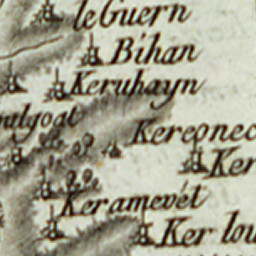 le Guern
Bihan
Keruhayn
Kereonec
Ker
Keramevét
Ker lou